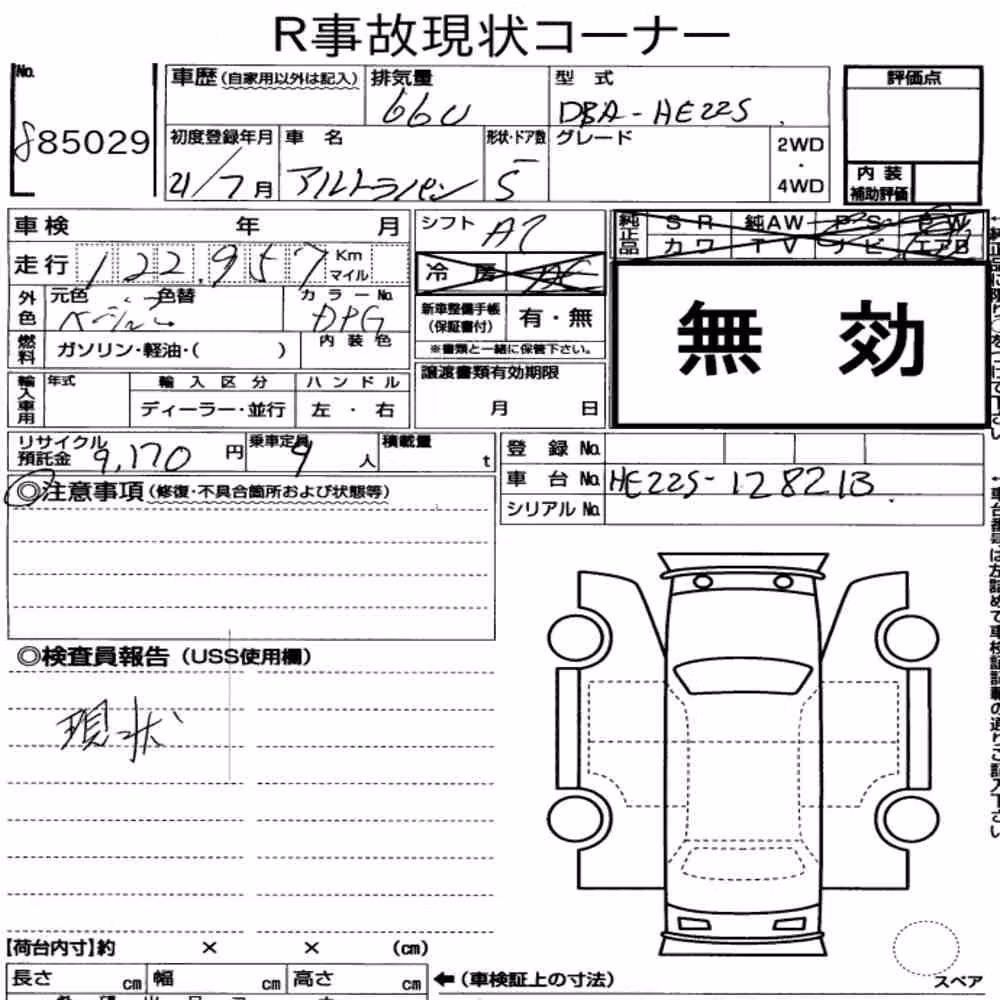 R事故現状コーナー
No. 車歴 (自家用以外は記入) 排気量 型式 評価点
85029 660 DBA-HE22S
初度登録年月 車名 形状・ドア数 グレード 2WD
・
21/7月 アルトラパン 5 4WD
内装
補助評価
車検 年 月 シフト AT
純正品 SR 純AW PS PW
カワ TV ナビ エアB
走行 122,957 Km
マイル
冷房 AC
外色 元色 ベージュ 色替 カラーNo. DPG
新車整備手帳
(保証書付) 有・無
無効
内装色
燃料 ガソリン・軽油・( )
※書類と一緒に保管下さい。
輸入車用 年式 輸入区分 ハンドル
ディーラー・並行 左・右
譲渡書類有効期限
月 日
リサイクル
預託金 9,170 円 乗車定員 人 積載量 t
登録No.
車台No. HE22S-128213
シリアルNo.
◎注意事項 (修復・不具合箇所および状態等)
◎検査員報告 (USS使用欄)
現状
【荷台内寸】約 × × (cm)
長さ cm 幅 cm 高さ cm
←(車検証上の寸法)
スペア